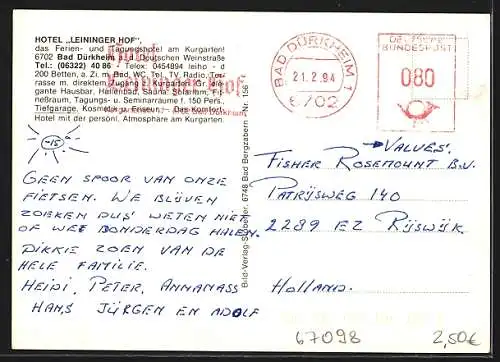 HOTEL „LEININGER HOF"
das Ferien- und Tagungshotel am Kurgarten!
6702 Bad Dürkheim Deutschen Weinstraße
Tel.: (06322) 40 86 Telex: 0454894 leiho - d
200 Betten, a. Zi. m. Bad, WC, Tel., TV, Radio, Ter-
rasse m. direktem
gante Hausbar, Hallenbad, Sauna, Solarium, Fi-
neßraum, Tagungs- u. Seminarräume f. 150 Pers.,
Tiefgarage, Kosmetik u. Friseur. - Das Komfort-
Hotel mit der persönl. Atmosphäre am Kurgarten.
BAD DÜRKHEIM 1
21.2.94
6702
DEUTSCHE
BUNDESPOST
080
-15
GEEN SPOOR VAN ONZE
FIETSEN. WE BLIJVEN
ZOEKEN DUS WETEN NIET
OF WE DONDERDAG HALEN.
DIKKIE ZOEN VAN DE
HELE FAMILIE.
HEIDI, PETER, ANNAMASS
HANS JÜRGEN EN ADOLF
Bild-Verlag 6748 Bad Bergzabern Nr. 156
"VALUES"
FISHER ROSEMOUNT B.V.
PATRIJSWEG 140
2289 EZ RIJSWIJK
HOLLAND.
67098
2,50€